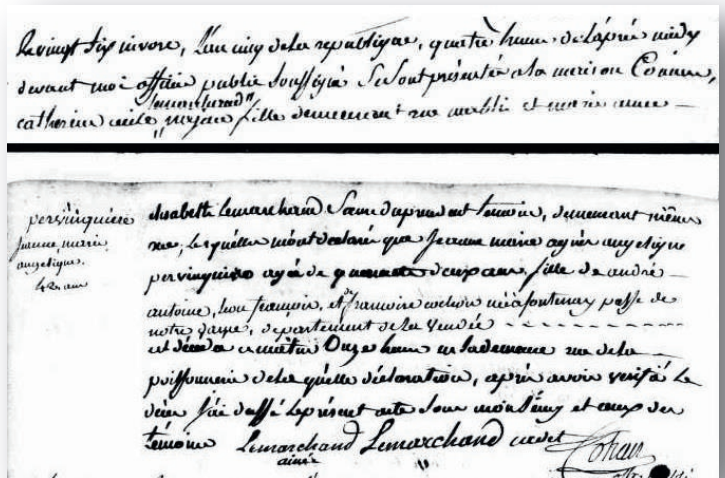 Le vingt six nivose, L'an cinq de la republique, quatre heure de L'après midy
devant moi officier public soussigné Se Sont présentée a la maison Comune,
Lemarchand
catherine cecile majeure fille demeurant rue mably et marie anne
pervinquiere
jeanne marie
angelique.
42 ans
elisabeth Lemarchand Soeur du precedent temoin, demeurant même
rue, lesquelle mont declaré que Jeanne marie agnès angelique
pervinquiere agée de quarante deux ans, fille de andré
antoine, bon françois, et de francoise née a fontenay psse de
notre dame, département de la vendée
est décédée ce matin Onze heure en sa demeure rue de la
poissonnerie de laquelle déclaration, après avoir verifié le
décès j'ai dressé le présent acte Sous mon Seing et ceux des
témoins Lemarchand Lemarchand cadet
ainée